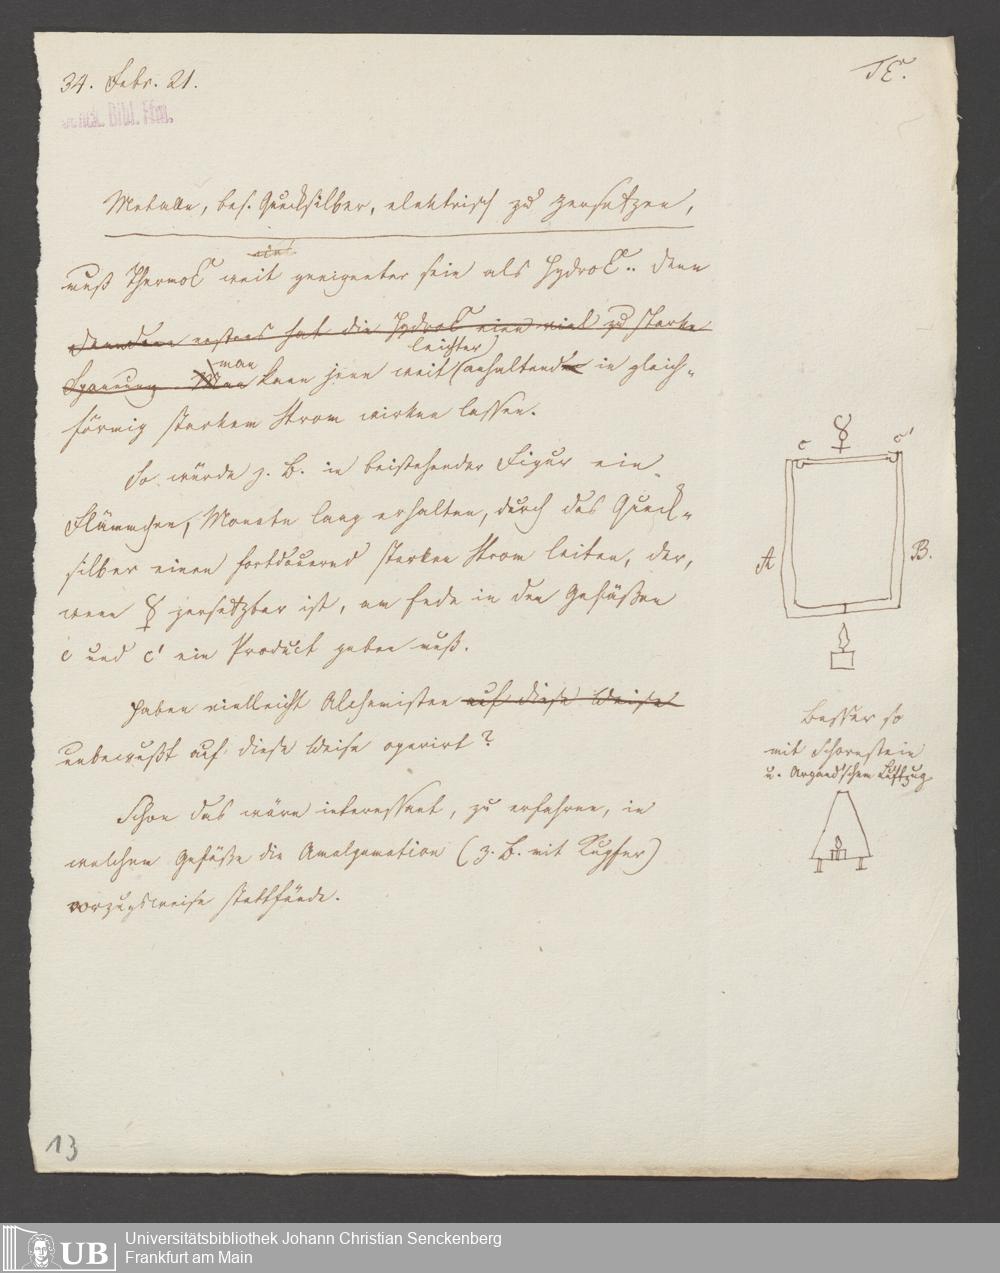 34. Febr. 21.
TE.
Senck. Bibl. Ffm.
Metalle, bes. Quecksilber, elektrisch zu zersetzen,
muß ThermoE weit geeigneter sein als HydroE.. Denn
erstres hat die HydroE eine viel zu starke
leichter
Spannung. man kann jene weit anhaltend in gleich-
förmig starkem Strom wirken lassen.
So würde z. B. in beistehender Figur ein
Flämmchen, Monate lang erhalten, durch das Queck-
silber einen fortdauernd starken Strom leiten, der,
wenn ☿ zersetzbar ist, am Ende in den Gefäßen
c und c' ein Product geben muß.
Haben vielleicht Alchemisten auf diese Weise
unbewußt auf diese Weise operirt?
Schon das wäre interessant, zu erfahren, in
welchem Gefäße die Amalgamation (z. B. mit Kupfer)
vorzugsweise stattfände.
c ☿ c'
A B.
Besser so
mit Schornstein
u. Argand'schem Luftzug
13
UB
Universitätsbibliothek Johann Christian Senckenberg
Frankfurt am Main